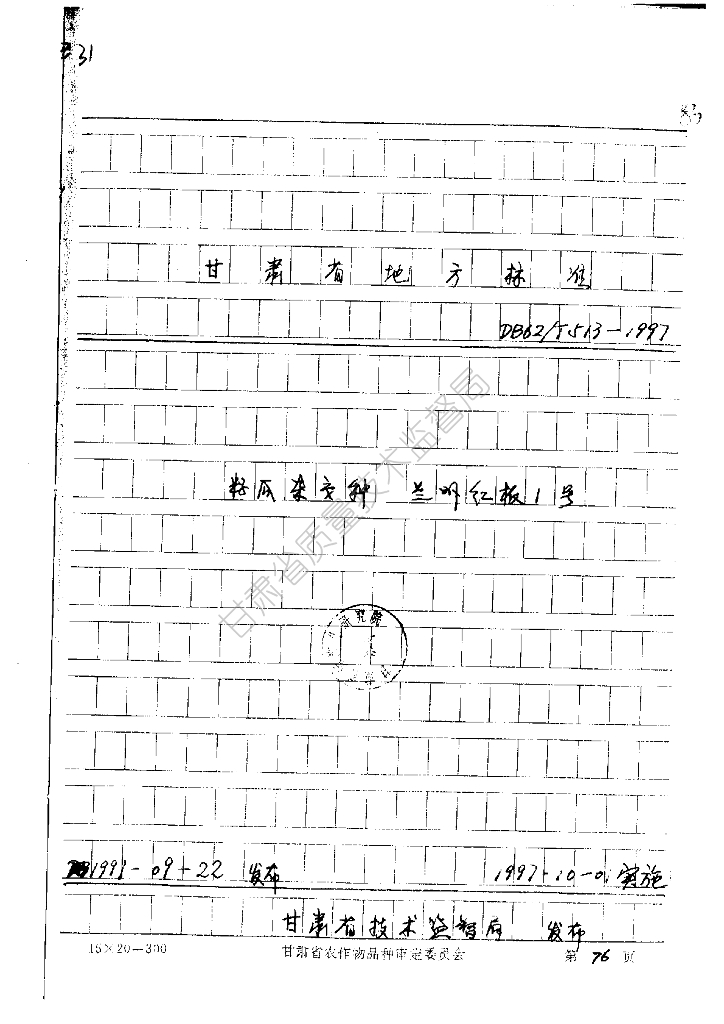 31
甘肃省地方标准
DB62/T513-1997
籽瓜杂交种 兰州红板1号
甘肃省质量技术监督局
研究院
1997-09-22 发布 1997-10-01 实施
甘肃省技术监督局 发布
15×20-300 甘肃省农作物品种审定委员会 第 76 页